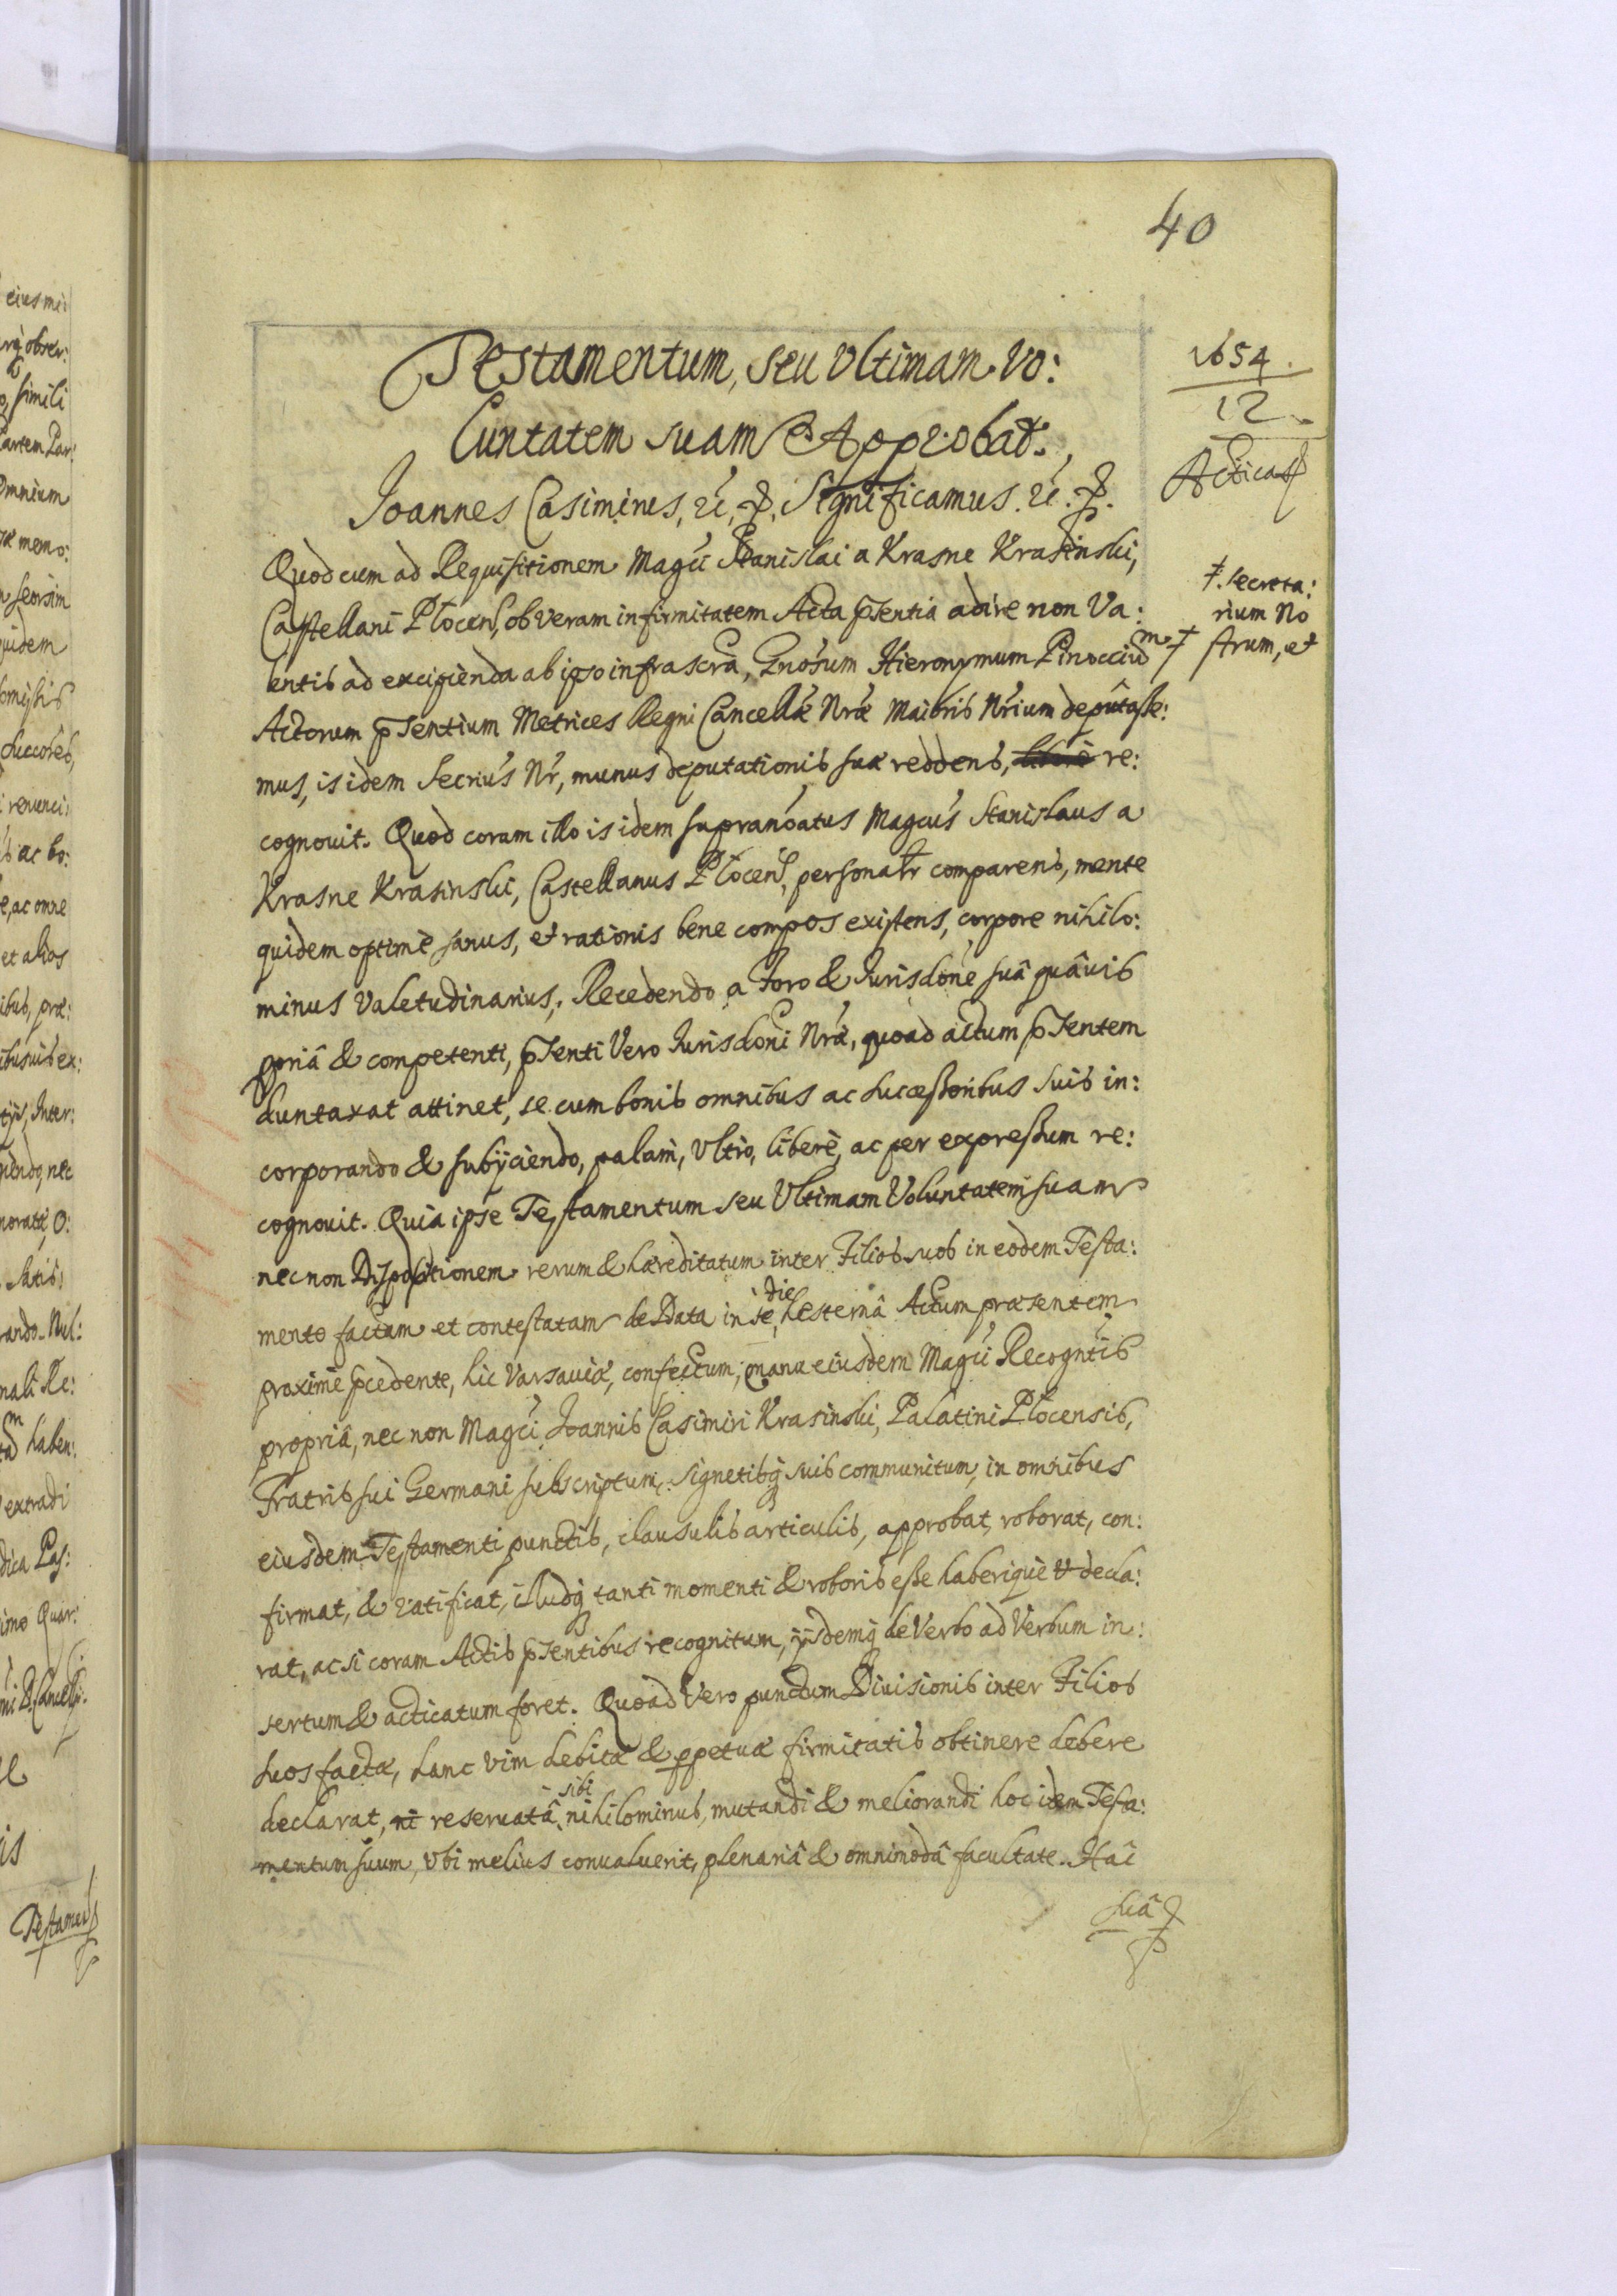 40
Testamentum, seu Ultimam Vo:
luntatem suam Approbat.
Joannes Casimirus, etc, Significamus. etc.
Quod cum ad Requisitionem Magci Stanislai a Krasne Krasinski,
Castellani Plocen, ob veram infirmitatem Acta pntia adire non Va:
lentis ad excipienda ab ipso infrascra, Gnosum Hieronymum Pinoccium ‡
Actorum psentium Metrices Regni Cancellæ Nræ Maioris Nrium deputasse:
mus, is idem Secrius Nr, munus deputationis suæ reddens, re:
cognovit. Quod coram illo is idem supranoatus Magcus Stanislaus a
Krasne Krasinski, Castellanus Plocen, personalr comparens, mente
quidem optimè sanus, et rationis bene compos existens, corpore nihilo:
minus valetudinarius, Recedendo a Foro & Jurisdone suâ quâvis
ppriâ & competenti, psenti Vero Jurisdoni Nræ, quoad actum psentem
duntaxat attinet, se cum bonis omnibus ac successoribus suis in:
corporando & subijciendo, palam, Ultro, liberè, ac per expressum re:
cognovit. Quia ipse Testamentum seu Ultimam Voluntatem suam
nec non Dispositionem rerum & hæreditatum inter Filios suos in eodem Testa:
mento factam et contestatam de Data in se, die hesternâ Actum præsentem
proximè pcedente, hic Varsaviæ, confectum, manu eiusdem Magci Recogntis
propriâ, nec non Magci Joannis Casimiri Krasinski, Palatini Plocensis,
Fratris sui Germani subscriptum, signetisq suis communitum, in omnibus
eiusdem Testamenti punctis, clausulis articulis, approbat, roborat, con:
firmat, & ratificat, illudq tanti momenti & roboris esse haberique decla:
rat, ac si coram Actis psentibus recognitum, ijsdemq de Verbo ad Verbum in:
sertum & acticatum foret. Quoad Vero punctum Divisionis inter Filios
suos factæ, hanc vim debitæ & ppetuæ firmitatis obtinere debere
declarat, reservatâ sibi nihilominus, mutandi & meliorandi hoc idem Testa:
mentum suum, ubi melius convaluerit, plenariâ & omnimodâ facultate. Hâc
suâ
1654.
12
Acticat
‡. secreta:
rium No
strum, et
eius mei
obser:
simili
artem Par:
Omnium
memo:
seorsim
quidem
Succores,
renunci
ac bo:
ac omne
et alios
Inter:
nec
Satis
extradi
Testamen